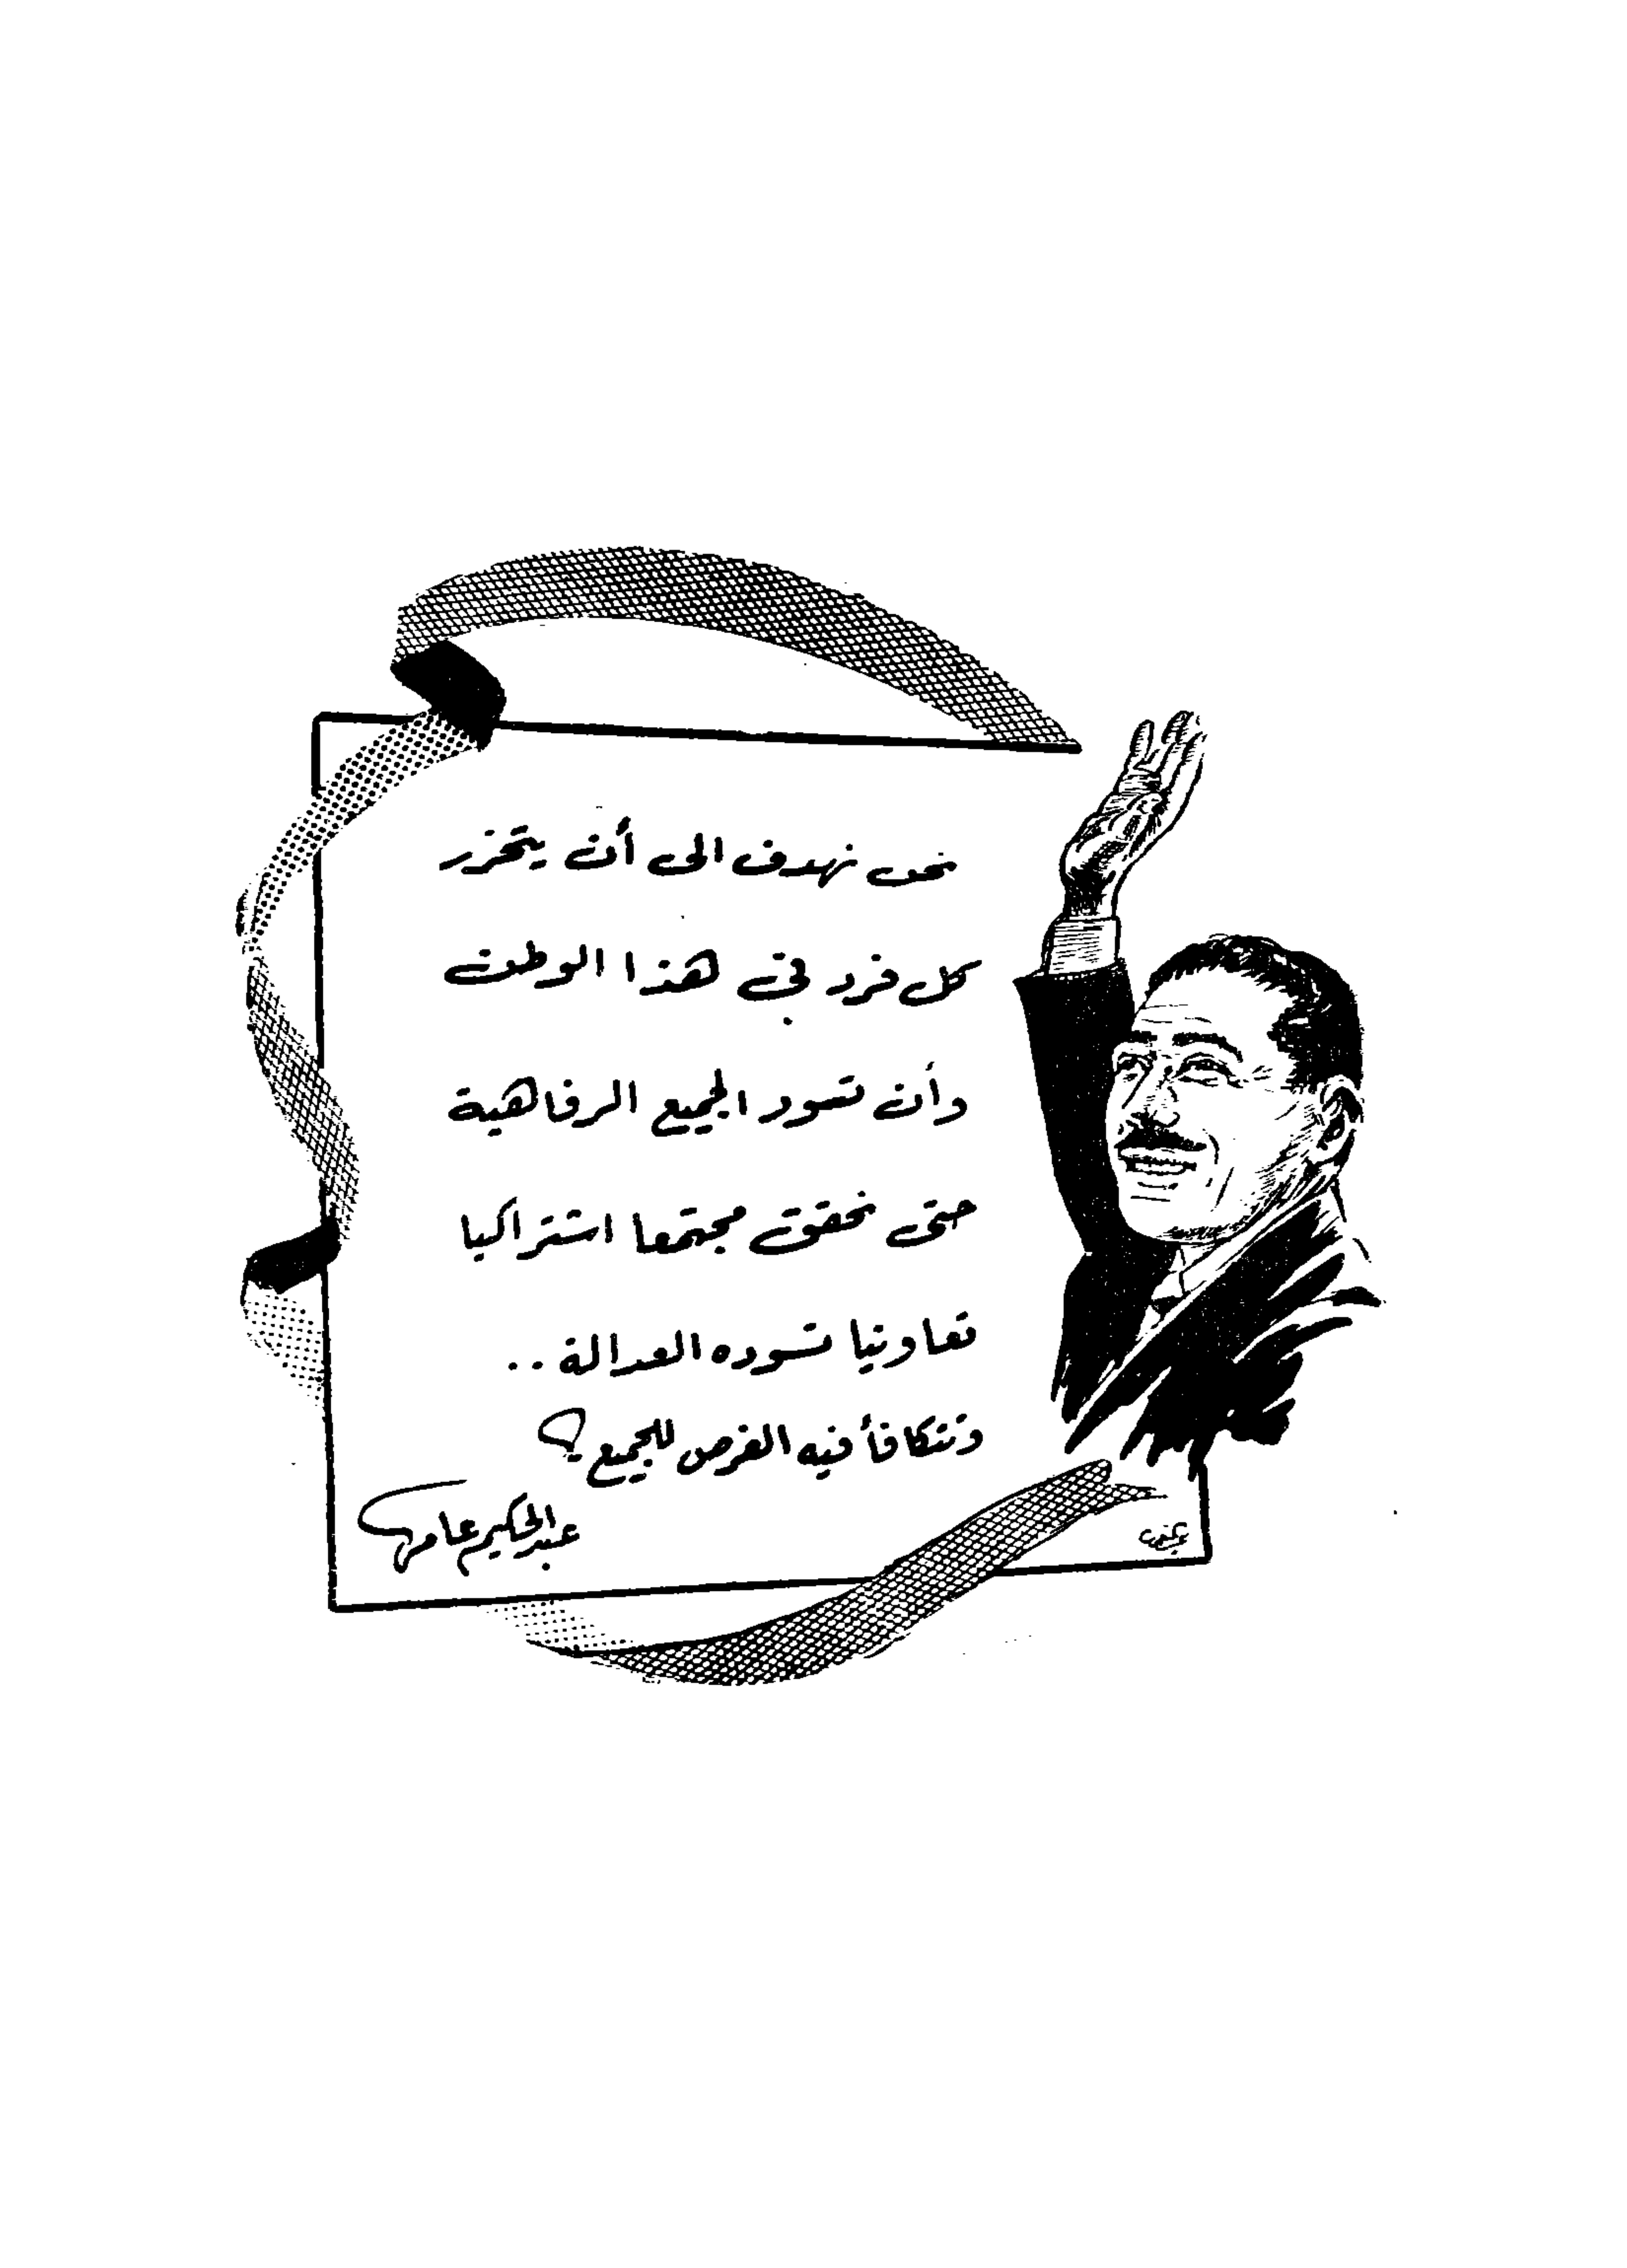 نحن نهدف الى أن يتحرر
كل فرد فى هذا الوطن
وأن تسود الجميع الرفاهية
حتى نحقق مجتمعا اشتراكيا
تعاونيا تسوده العدالة ..
وتتكافأ فيه الفرص للجميع
عبد الحكيم عامر